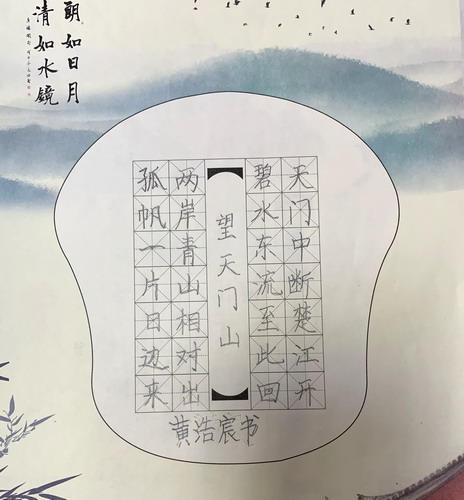 朗如日月
清如水镜
天门中断楚江开
碧水东流至此回
望天门山
两岸青山相对出
孤帆一片日边来
黄浩宸书